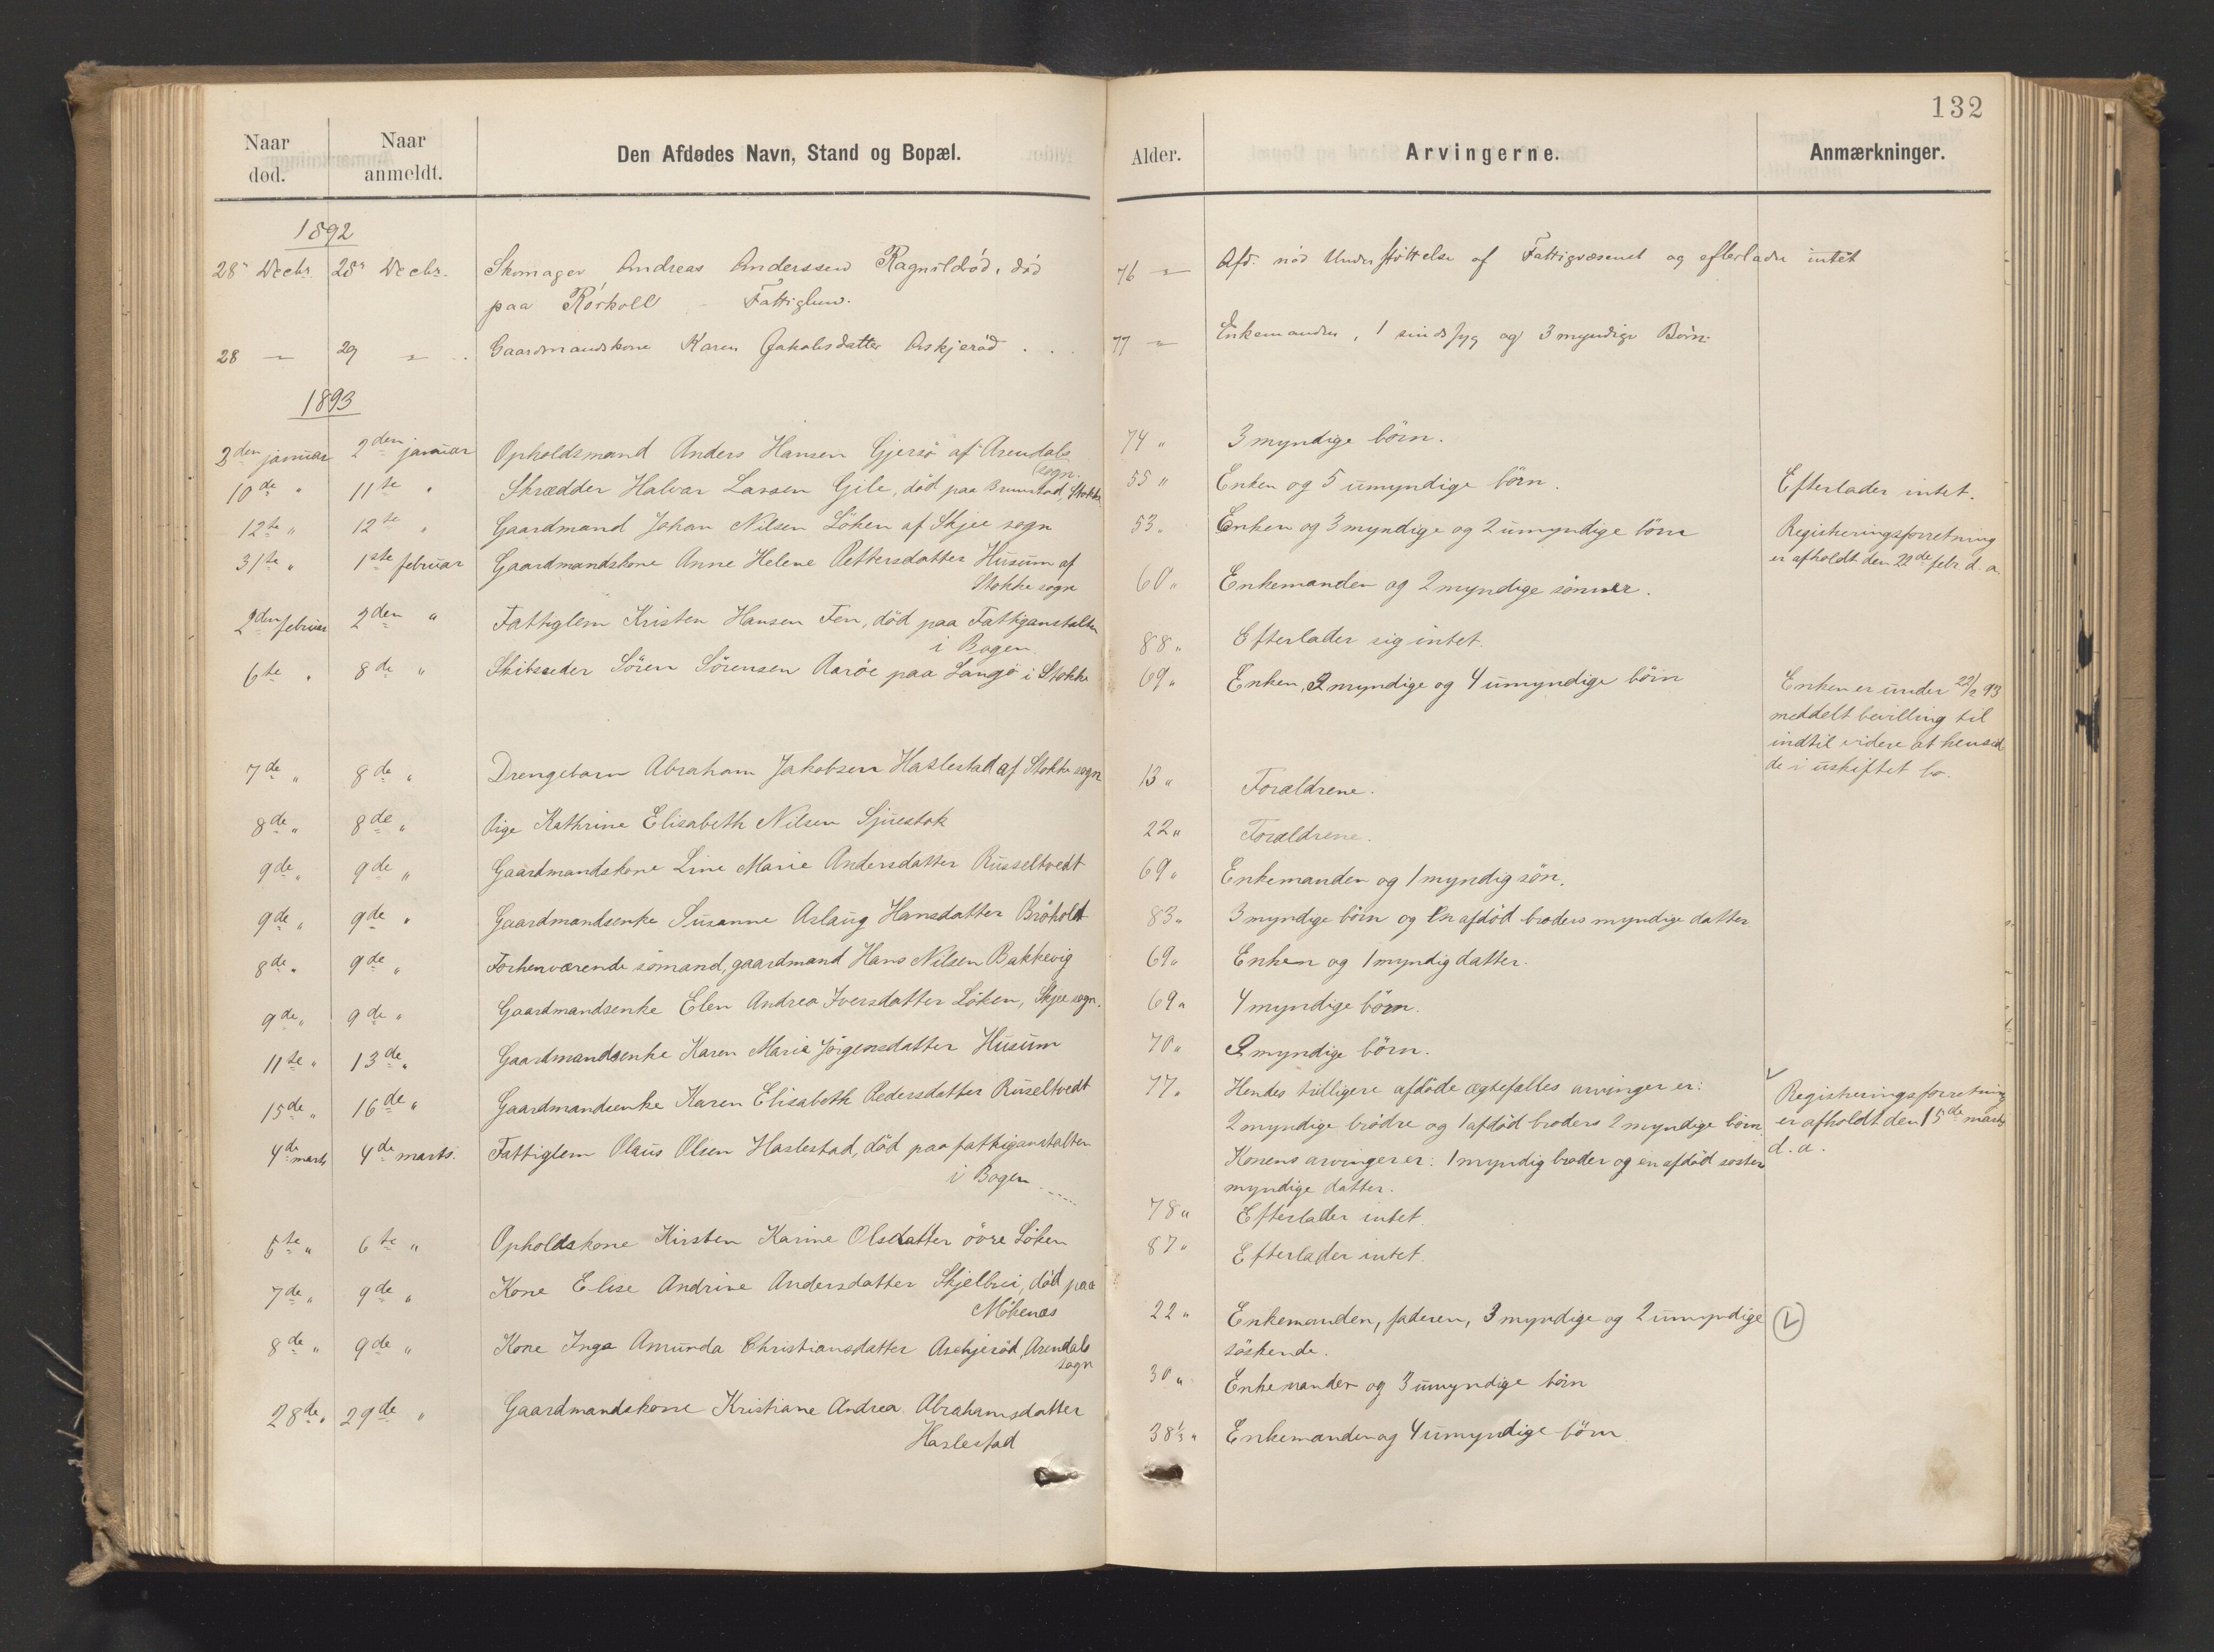 132
Naar død. Naar anmeldt. Den Afdødes Navn, Stand og Bopæl. Alder. Arvingerne. Anmærkninger.
1892
28 Decbr. 28 Decbr. Skomager Andreas Anderssen Ragnildrød, död 76 Afd. nød Understøttelse af Fattigvæsenet og efterlader intet
paa Rørkoll - Fattiglem.
28 29 Gaardmandskone Karen Jakobsdatter Askjerød 77 Enkemanden, 1 sindssyg og 3 myndige Börn.
1893
2den januar 2den januar Opholdsmand Anders Hansen Gjersö af Arendals 74 " 3 myndige börn.
sogn.
10de " 11te " Skrædder Halvar Larsen Gile, död paa Brunstad, Stokke 55 " Enken og 5 umyndige börn. Efterlader intet.
12te " 12te " Gaardmand Johan Nilsen Löken af Skjee sogn 53 " Enken og 3 myndige og 2 umyndige börn Registreringsforretning
er afholdt den 22de febr. d. a.
31te " 1ste februar Gaardmandskone Anne Helene Pettersdatter Husum af 60 " Enkemanden og 2 myndige sönner.
Stokke sogn
2den februar 2den " Fattiglem Kristen Hansen Fen, död paa Fattiganstalten 88 " Efterlader sig intet.
i Bogen.
6te " 8de " Skibsreder Sören Sörensen Aaröe paa Langö i Stokke 69 " Enken, 2 myndige og 4 umyndige börn Enken er under 22/2 93
meddelt bevilling til
indtil videre at hensid
de i uskiftet bo.
7de " 8de " Drengebarn Abraham Jakobsen Haslestad af Stokke sogn 13 " Forældrene.
8de " 8de " Pige Kathrine Elisabeth Nilsen Sjuestok 22 " Forældrene.
9de " 9de " Gaardmandskone Line Marie Andersdatter Russeltvedt 69 " Enkemanden og 1 myndig sön.
9de " 9de " Gaardmandsenke Susanne Aslaug Hansdatter Bröholt 83 " 3 myndige börn og en afdöd broders myndige datter
8de " 9de " Forhenværende sömand, gaardmand Hans Nilsen Bakkevig 69 " Enken og 1 myndig datter.
9de " 9de " Gaardmandsenke Elen Andrea Iversdatter Löken, Skjee sogn. 69 " 4 myndige börn.
11te " 13de " Gaardmandsenke Karen Maria Jörgensdatter Husum 70 " 2 myndige börn.
15de " 16de " Gaardmandsenke Karen Elisabeth Pedersdatter Ruseltvedt 77 " Hendes tidligere afdöde ægtefælles arvinger er: Registreringsforretning
2 myndige brödre og 1 afdöd broders 2 myndige börn. er afholdt den 15de marts
Konens arvinger er: 1 myndig broder og en afdöd søsters d. a.
myndige datter.
4de marts 4de marts. Fattiglem Olaus Olsen Haslestad, död paa fattiganstalten 78 " Efterlader intet.
i Bogen
6te " 6te " Opholdskone Kirsten Karine Olsdatter övre Löken 87 " Efterlader intet.
7de " 9de " Kone Elise Andrine Andersdatter Skjelbrei, död paa 22 " Enkemanden, faderen, 3 myndige og 2 umyndige
Möbenæs söskende.
8de " 9de " Kone Inga Amunda Christiansdatter Askjeröd, Arendals 30 " Enkemanden og 3 umyndige börn
sogn
28de " 29de " Gaardmandskone Kristiane Andrea Abrahamsdatter 38 1/3 " Enkemanden og 4 umyndige börn
Haslestad